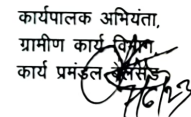 कार्यपालक अभियंता,
ग्रामीण कार्य विभाग
कार्य प्रमंडल बेलसंड